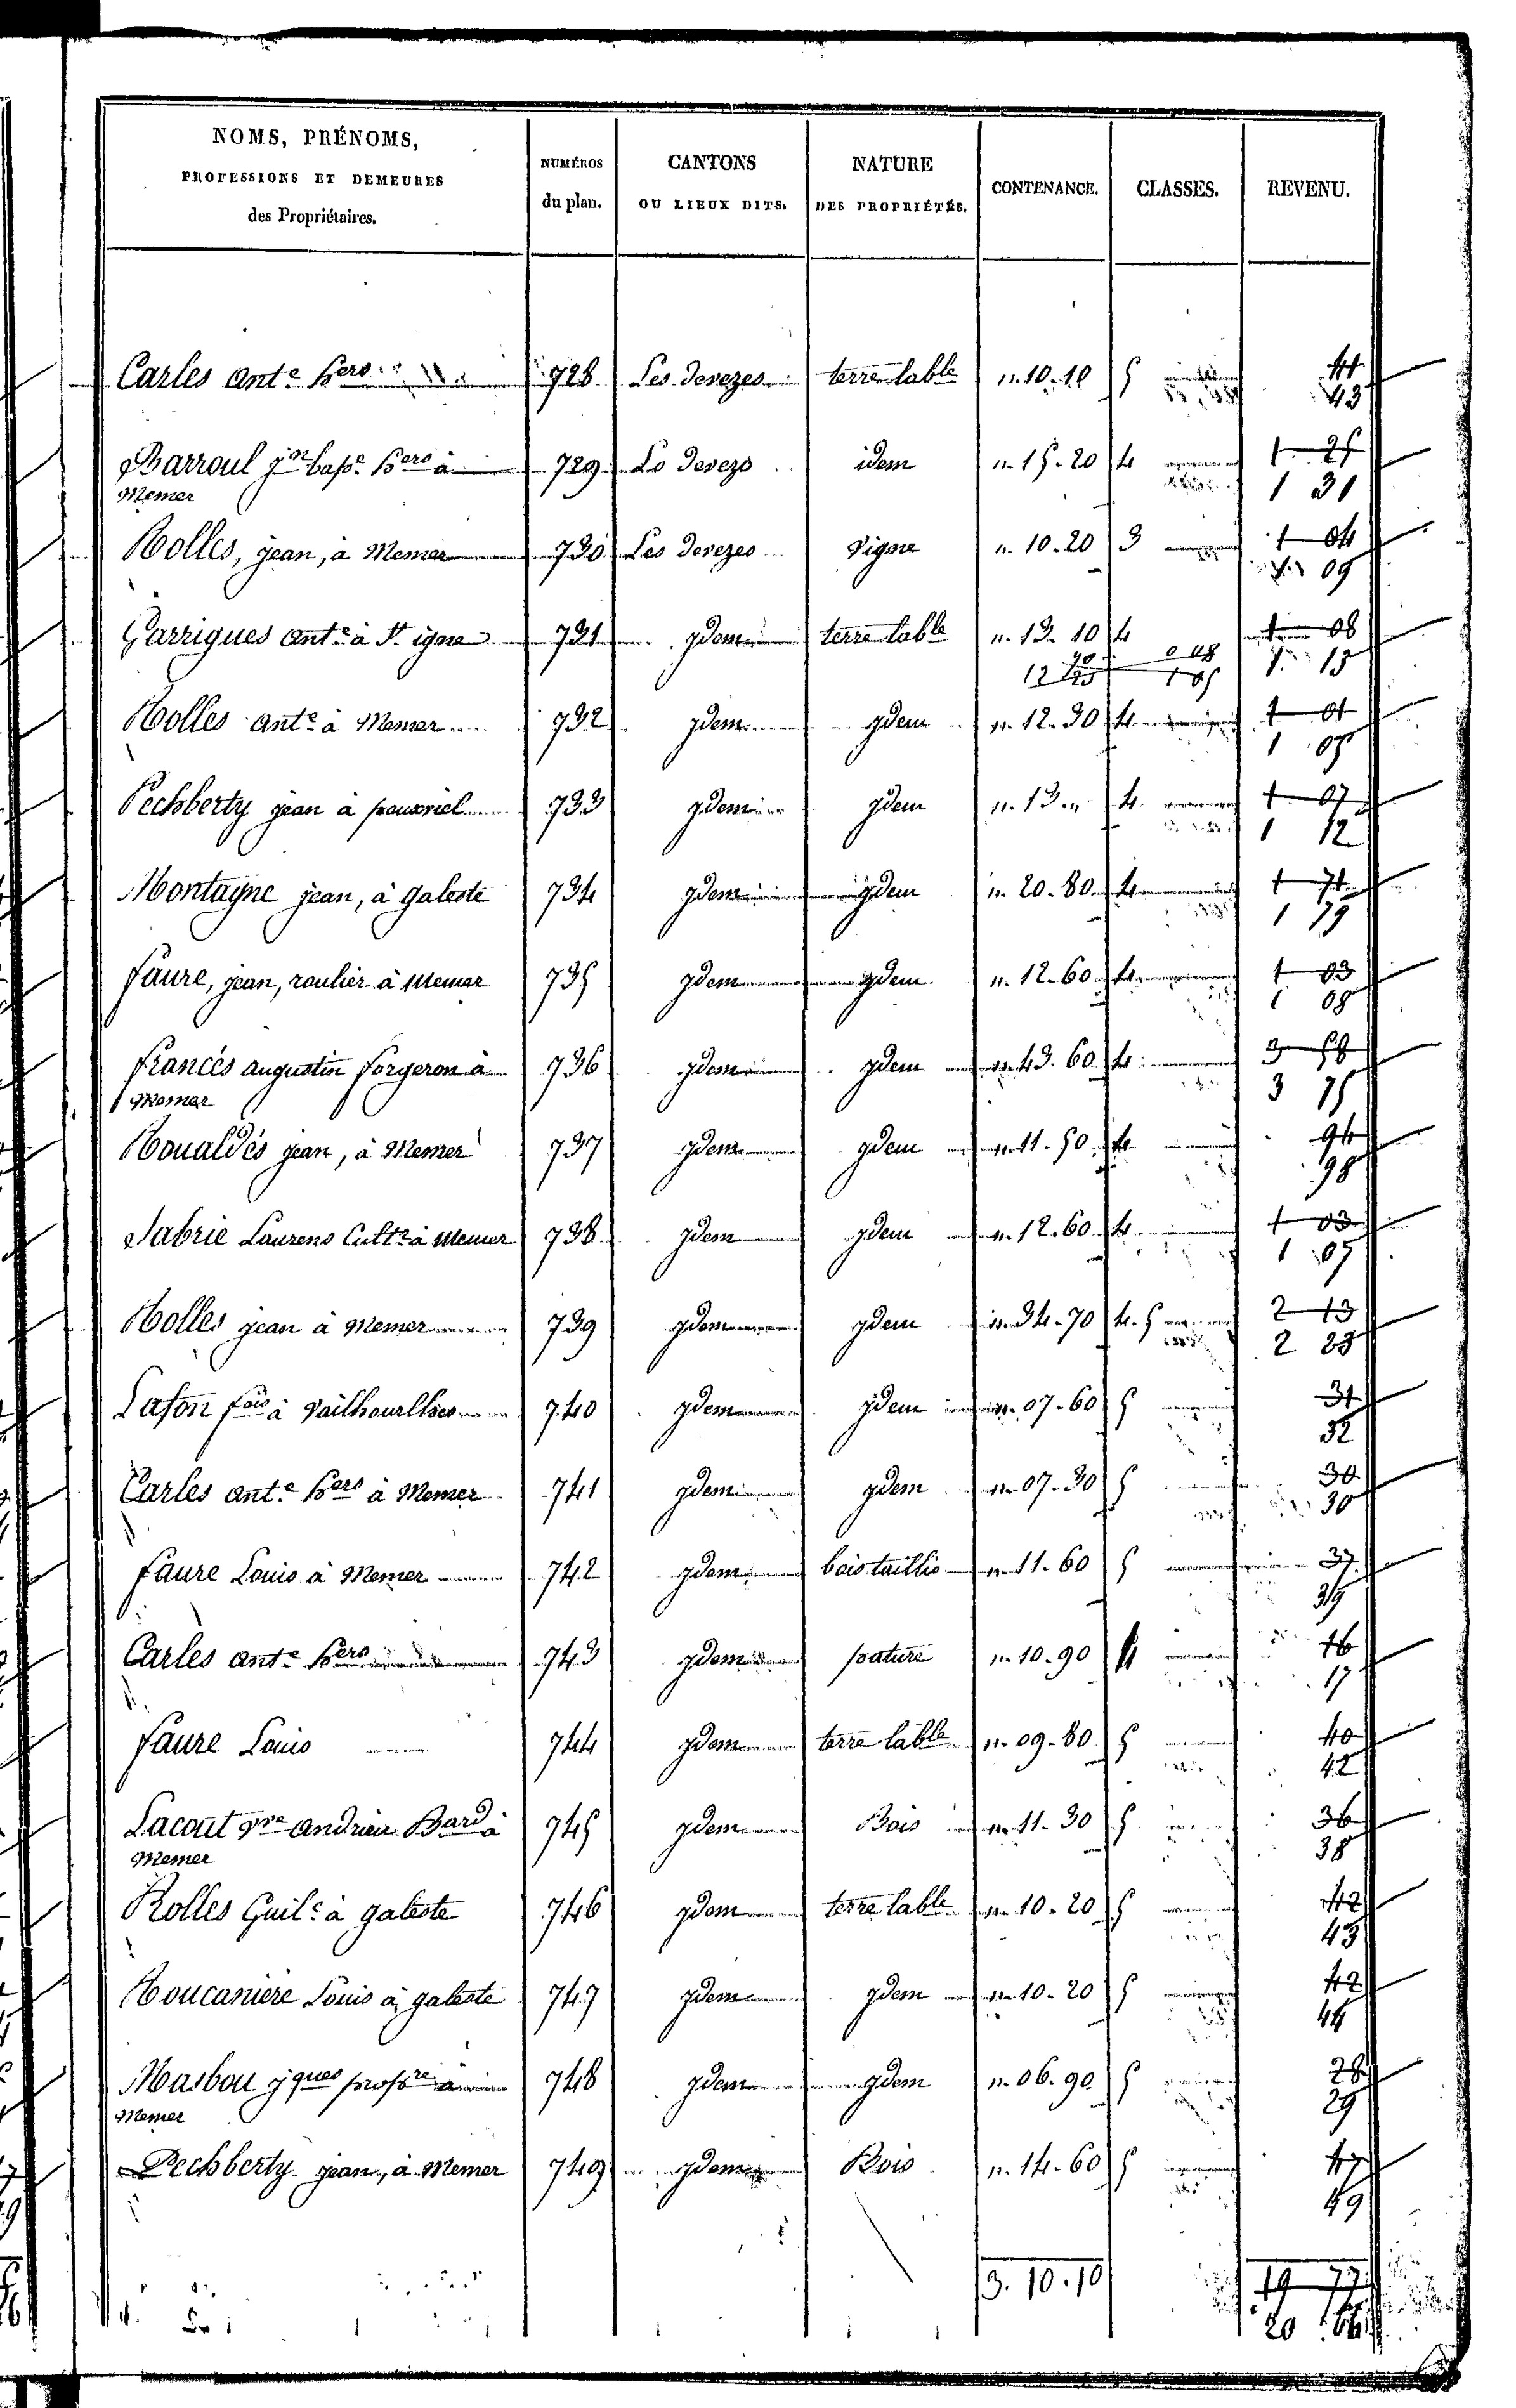 NOMS, PRÉNOMS,
PROFESSIONS ET DEMEURES
des Propriétaires.
NUMÉROS
du plan.
CANTONS
OU LIEUX DITS.
NATURE
DES PROPRIÉTÉS.
CONTENANCE.
CLASSES.
REVENU.
Carles ant.e hers 728 Les devezes terre lable ". 10. 10 5 41
43
Barroul jn bapt. hers à 729 Lo devezo idem ". 15. 20 4 1 25
Memer 1 31
Rolles, jean, à Memer 730 Les devezes vigne ". 10. 20 3 1 04
09
Garrigues ant.e à St. igne 731 idem terre lable ". 13. 10 4 1 08
1 13
Rolles ant.e à Memer 732 idem idem ". 12. 30 4 1 01
1 05
Pechberty jean à 733 idem idem ". 13. " 4 1 07
1 12
Montagne jean, à galeste 734 idem idem ". 20. 80 4 1 71
1 79
faure, jean, roulier à Memer 735 idem idem ". 12. 60 4 1 03
1 08
francés augustin forgeron à 736 idem idem ". 43. 60 4 3 58
Memer 3 75
Roualdés jean, à Memer 737 idem idem ". 11. 50 4 94
98
Sabrie Laurens Cultr. à Memer 738 idem idem ". 12. 60 4 1 03
1 07
Rolles jean à Memer 739 idem idem ". 34. 70 4. 5 2 13
2 23
Lafon fois à Vailhourlhes 740 idem idem ". 07. 60 5 31
32
Carles ant.e hers à Memer 741 idem idem ". 07. 30 5 30
30
faure Louis à Memer 742 idem bois taillis ". 11. 60 5 37
39
Carles ant.e hers 743 idem pature ". 10. 90 16
17
faure Louis 744 idem terre lable ". 09. 80 5 40
42
Lacout andrieu Bard à 745 idem Bois ". 11. 30 5 36
Memer 38
Rolles Guil.e à galeste 746 idem terre lable ". 10. 20 5 42
43
Roucaniere Louis à galeste 747 idem idem ". 10. 20 5 42
44
Masbou jques propre à 748 idem idem ". 06. 90 5 28
Memer 29
Pechberty jean, à Memer 749 idem Bois ". 14. 60 5 47
49
3. 10. 10 19 77
20 66